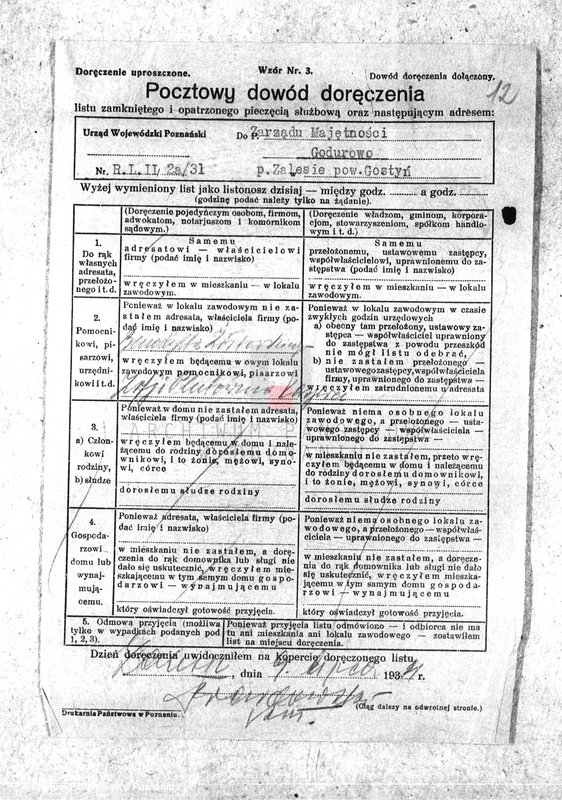 Doręczenie uproszczone.
Wzór Nr. 3.
Dowód doręczenia dołączony.
12
Pocztowy dowód doręczenia
listu zamkniętego i opatrzonego pieczęcią służbową oraz następującym adresem:
Urząd Wojewódzki Poznański
Do P. Zarządu Majętności
Godurowo
Nr. R.L.II 2a/31
p. Zalesie pow. Gostyń
Wyżej wymieniony list jako listonosz dzisiaj — między godz. ......... a godz. .........
(godzinę podać należy tylko na żądanie).
(Doręczenie pojedyńczym osobom, firmom, adwokatom, notarjuszom i komornikom sądowym.)
(Doręczenie władzom, gminom, korporacjom, stowarzyszeniom, spółkom handlowym i t. d.)
1.
Do rąk
własnych
adresata,
przełożonego i t. d.
Samemu
adresatowi — właścicielowi
firmy (podać imię i nazwisko)
wręczyłem w mieszkaniu — w lokalu
zawodowym.
Samemu
przełożonemu, ustawowemu zastępcy,
współwłaścicielowi, uprawnionemu do zastępstwa (podać imię i nazwisko)
wręczyłem w mieszkaniu — w lokalu
zawodowym.
2.
Pomocnikowi, pisarzowi,
urzędnikowi i t. d.
Ponieważ w lokalu zawodowym nie zastałem adresata, właściciela firmy (podać imię i nazwisko)
wręczyłem będącemu w owym lokalu
zawodowym pomocnikowi, pisarzowi
Ponieważ w lokalu zawodowym w czasie
zwykłych godzin urzędowych
a) obecny tam przełożony, ustawowy zastępca — współwłaściciel uprawniony
do zastępstwa z powodu przeszkód
nie mógł listu odebrać,
b) nie zastałem przełożonego —
ustawowego zastępcy, współwłaściciela
firmy, uprawnionego do zastępstwa —
wręczyłem zatrudnionemu u adresata
3.
a) Członkowi
rodziny,
b) słudze
Ponieważ w domu nie zastałem adresata,
właściciela firmy (podać imię i nazwisko)
wręczyłem będącemu w domu i należącemu do rodziny dorosłemu domownikowi, i to żonie, mężowi, synowi, córce
dorosłemu słudze rodziny
Ponieważ niema osobnego lokalu
zawodowego, a przełożonego — ustawowego zastępcy — współwłaściciela —
uprawnionego do zastępstwa —
w mieszkaniu nie zastałem, przeto wręczyłem będącemu w domu i należącemu
do rodziny dorosłemu domownikowi,
i to żonie, mężowi, synowi, córce
dorosłemu słudze rodziny
4.
Gospodarzowi
domu lub
wynajmującemu.
Ponieważ adresata, właściciela firmy (podać imię i nazwisko)
w mieszkaniu nie zastałem, a doręczenia do rąk domownika lub sługi nie
dało się uskutecznić, wręczyłem mieszkającemu w tym samym domu gospodarzowi — wynajmującemu
który oświadczył gotowość przyjęcia.
Ponieważ niema osobnego lokalu zawodowego, a przełożonego — współwłaściciela — uprawnionego do zastępstwa —
w mieszkaniu nie zastałem, a doręczenia do rąk domownika lub sługi nie dało
się uskutecznić, wręczyłem mieszkającemu w tym samym domu gospodarzowi — wynajmującemu
który oświadczył gotowość przyjęcia.
5. Odmowa przyjęcia (możliwa
tylko w wypadkach podanych pod
1, 2, 3).
Ponieważ przyjęcia listu odmówiono — i odbiorca nie ma
tu ani mieszkania ani lokalu zawodowego — zostawiłem
list na miejscu doręczenia.
Dzień doręczenia uwidoczniłem na kopercie doręczonego listu.
, dnia 9. lipca 1931 r.
Drukarnia Państwowa w Poznaniu.
(Ciąg dalszy na odwrotnej stronie.)